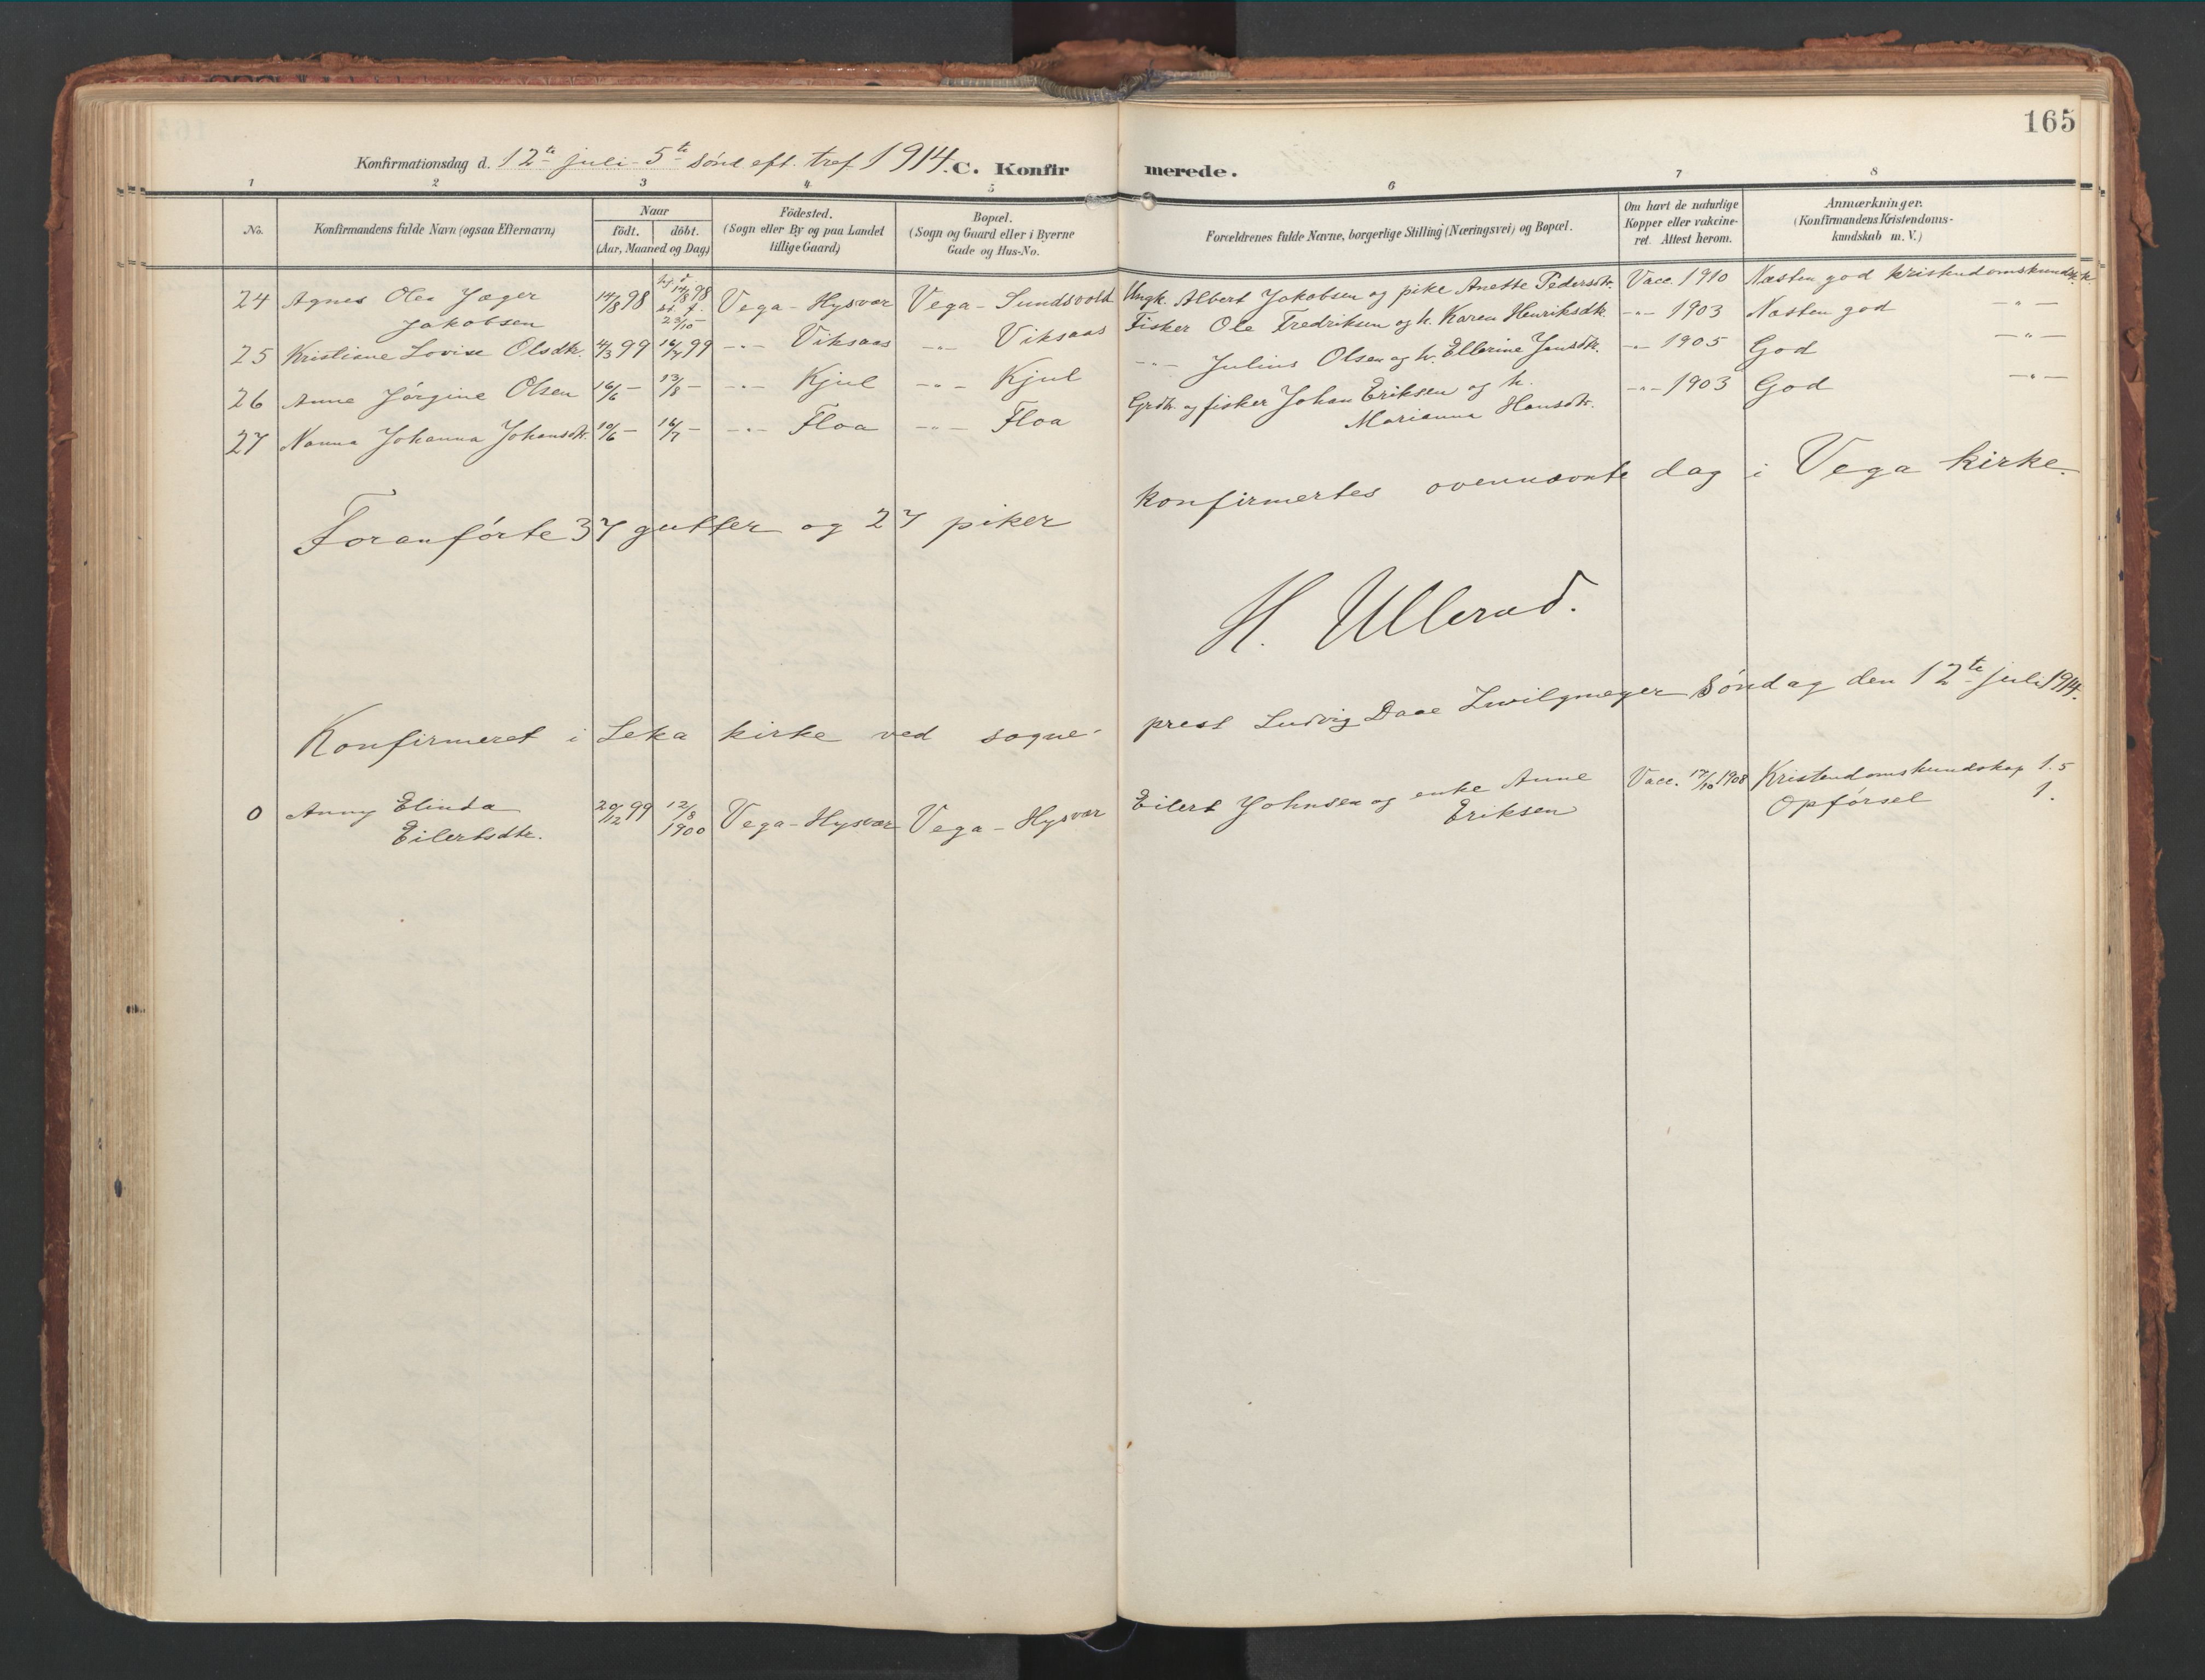 165
Konfirmationsdag d. 12te juli - 5te sönd eft. tref. 1914. C. Konfirmerede.
1 2 3 4 5 6 7 8
No.
Konfirmandens fulde Navn (ogsaa Efternavn)
Naar
födt. döbt.
(Aar, Maaned og Dag)
Födested.
(Sogn eller By og paa Landet
tillige Gaard)
Bopæl.
(Sogn og Gaard eller i Byerne
Gade og Hus-No.
Forældrenes fulde Navne, borgerlige Stilling (Næringsvei) og Bopæl.
Om havt de naturlige
Kopper eller vakcine-
ret. Attest herom.
Anmærkninger.
(Konfirmandens Kristendoms-
kundskab m. V.)
24 Agnes Olea Jæger Jakobsen 14/8 98 hj. d. 14/8 98 st. f. 23/10 Vega - Hysvær Vega - Sundsvold Ungk. Albert Jakobsen og pike Anette Pedersdtr. Vacc. 1910 Næsten god kristendomskundsk.
25 Kristiane Lovise Olsdtr. 4/3 99 16/4 99 -"- Viksaas -"- Viksaas Fisker Ole Fredriksen og h. Karen Henriksdtr. -"- 1903 Næsten god -"-
26 Anne Jörgine Olsen 16/6 - 13/8 - -"- Kjul -"- Kjul -"- Julius Olsen og h. Ellerine Jansdtr. -"- 1905 God -"-
27 Nanna Johanna Johansdtr. 10/6 - 16/7 - -"- Floa -"- Floa Grdbr. og fisker Johan Eriksen og h. Marianna Hansdtr. -"- 1903 God -"-
Foranförte 37 gutter og 27 piker konfirmertes ovennævnte dag i Vega kirke.
H. Ullerud.
Konfirmeret i Leka kirke ved sogne- prest Ludvig Daae Zwilgmeyer Söndag den 12te juli 1914.
0 Anny Elinda Eilertsdtr. 20/12 99 12/8 1900 Vega - Hysvær Vega - Hysvær Eilert Johnsen og enke Anne Eriksen Vacc. 17/10 1908 Kristendomskundskap 1.5
Opförsel 1.